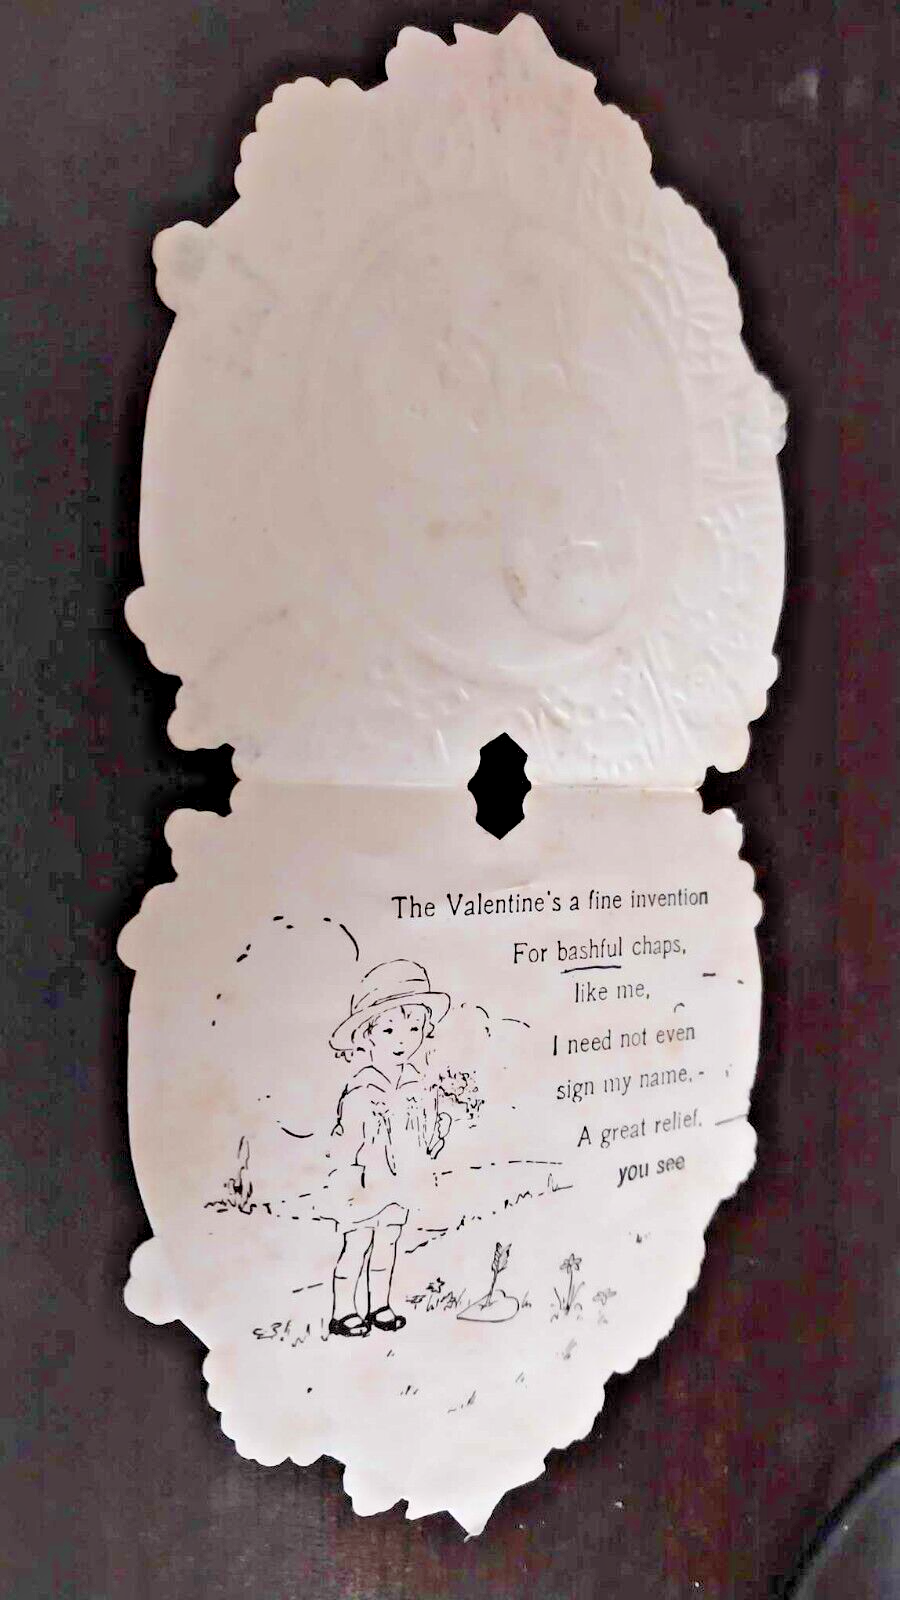 The Valentine's a fine invention
For bashful chaps,
like me,
I need not even
sign my name, -
A great relief,
you see